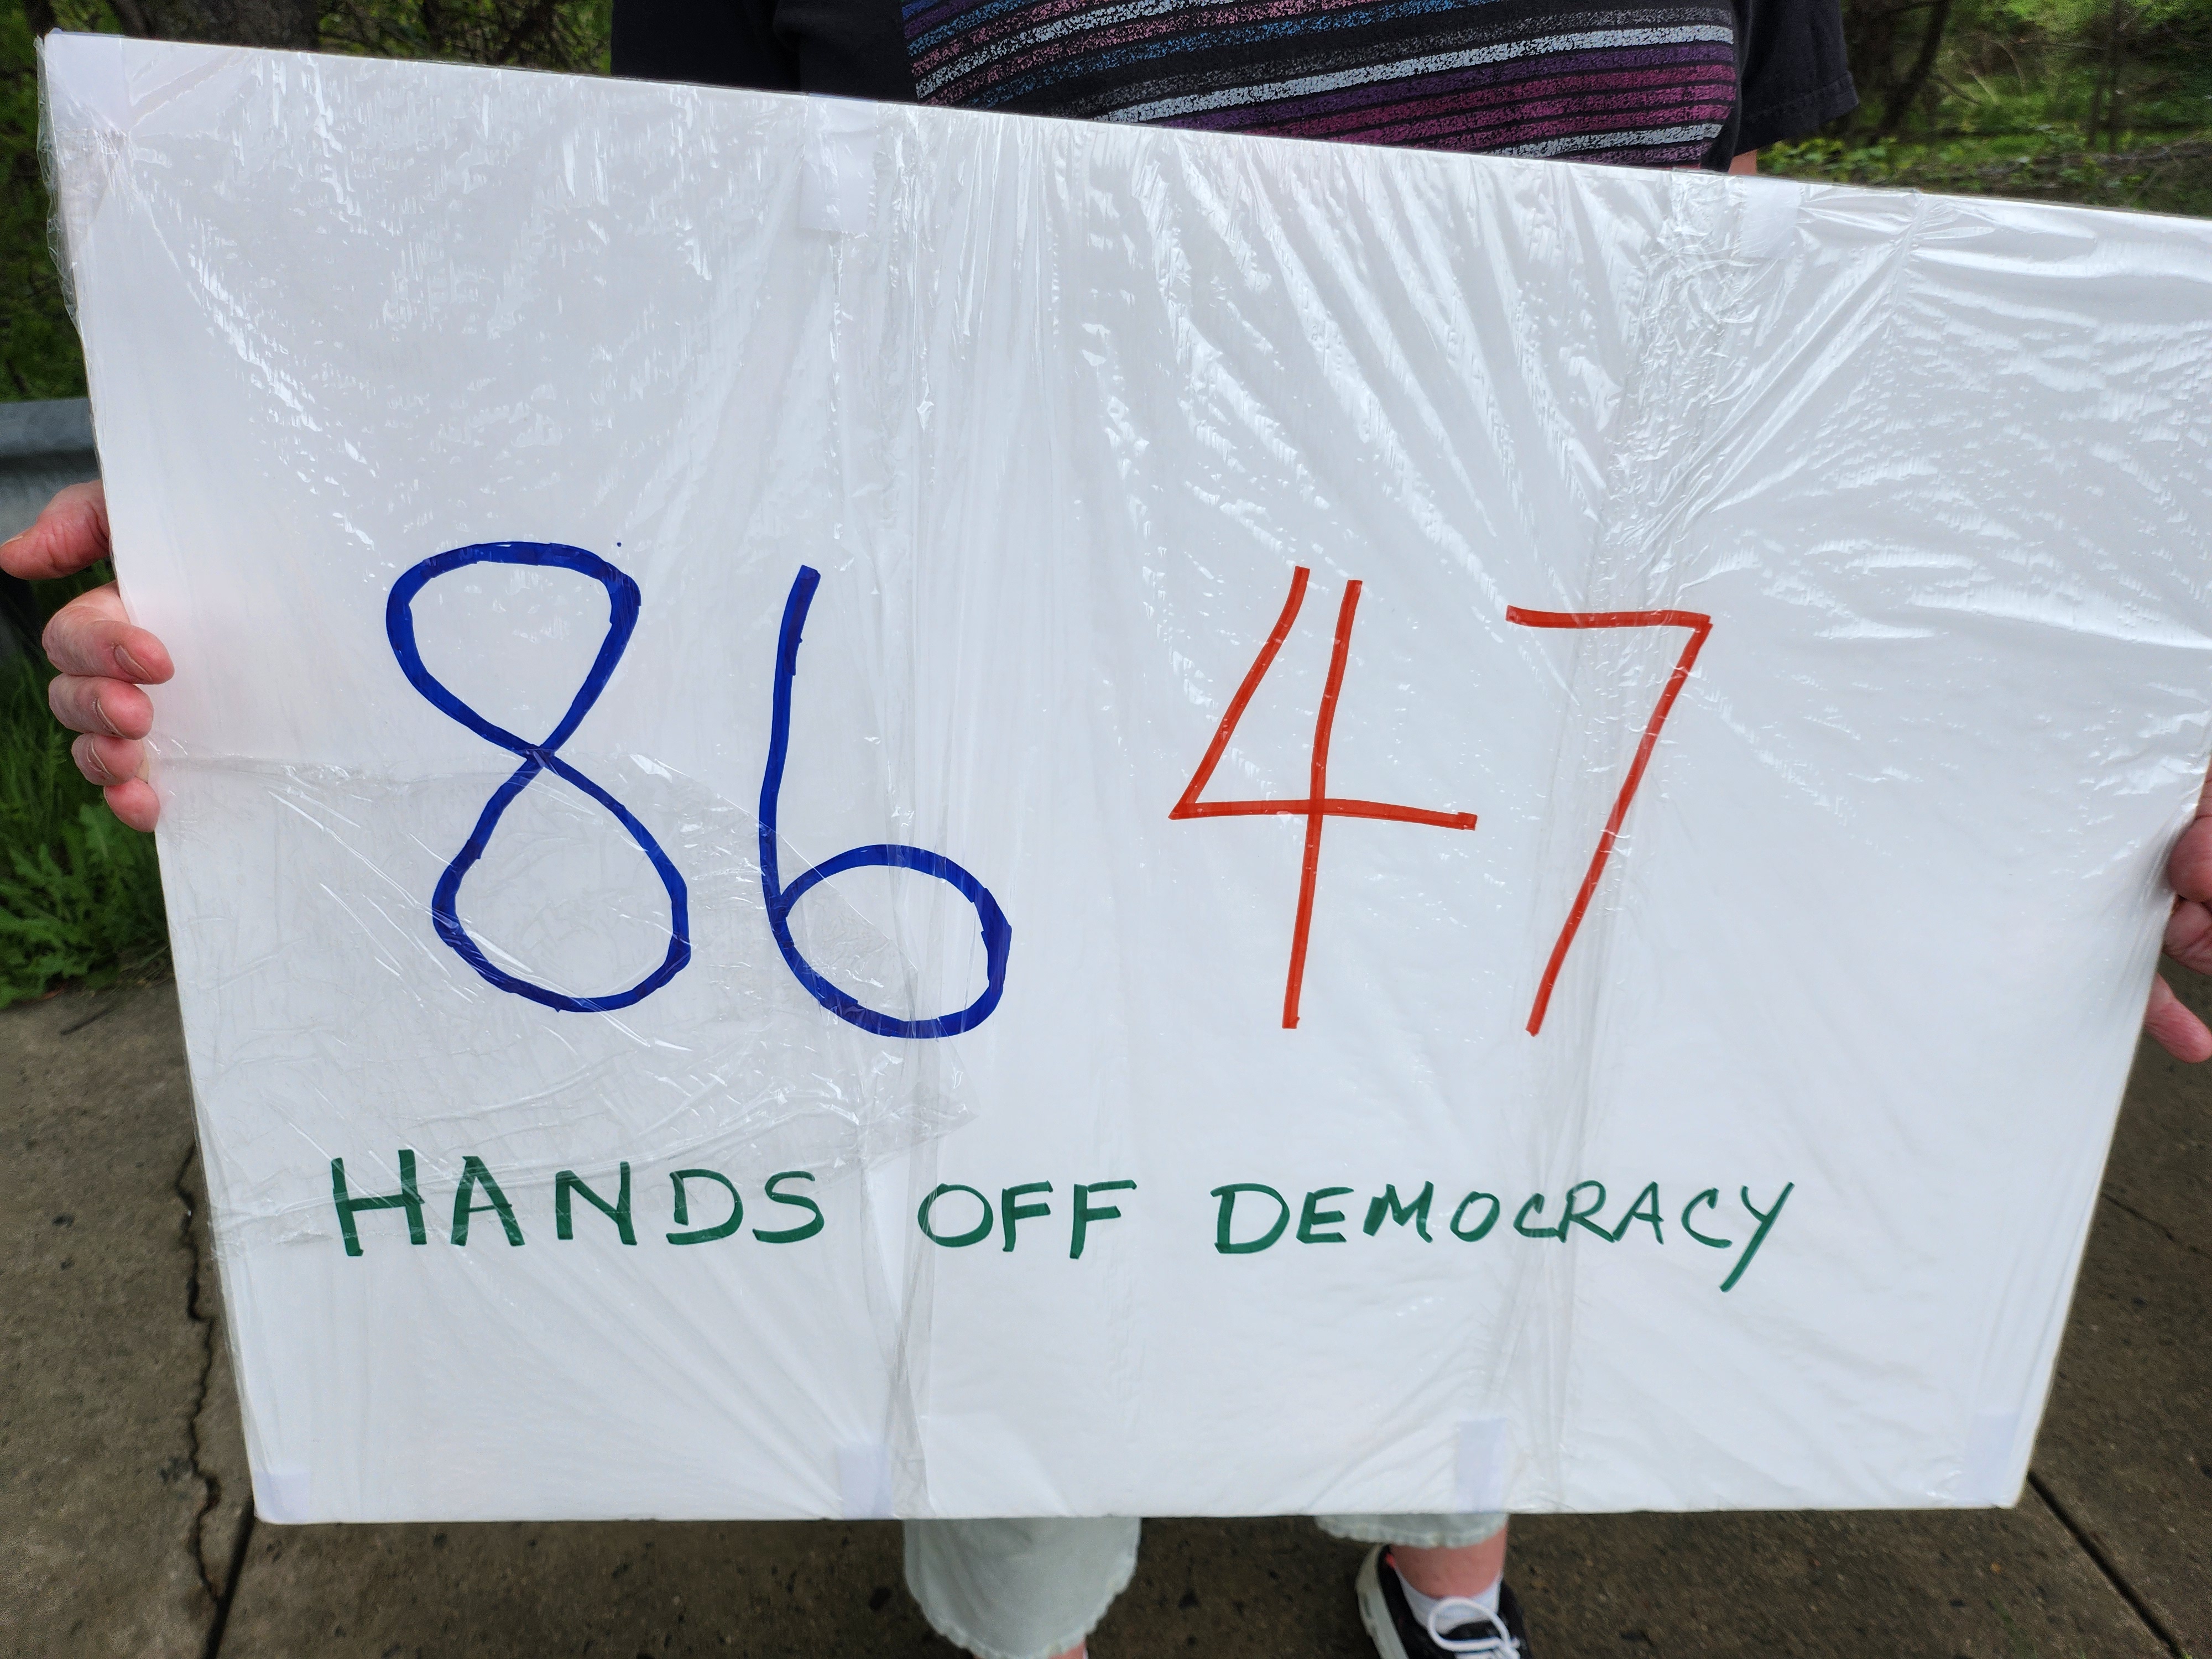 86 47
HANDS OFF DEMOCRACY